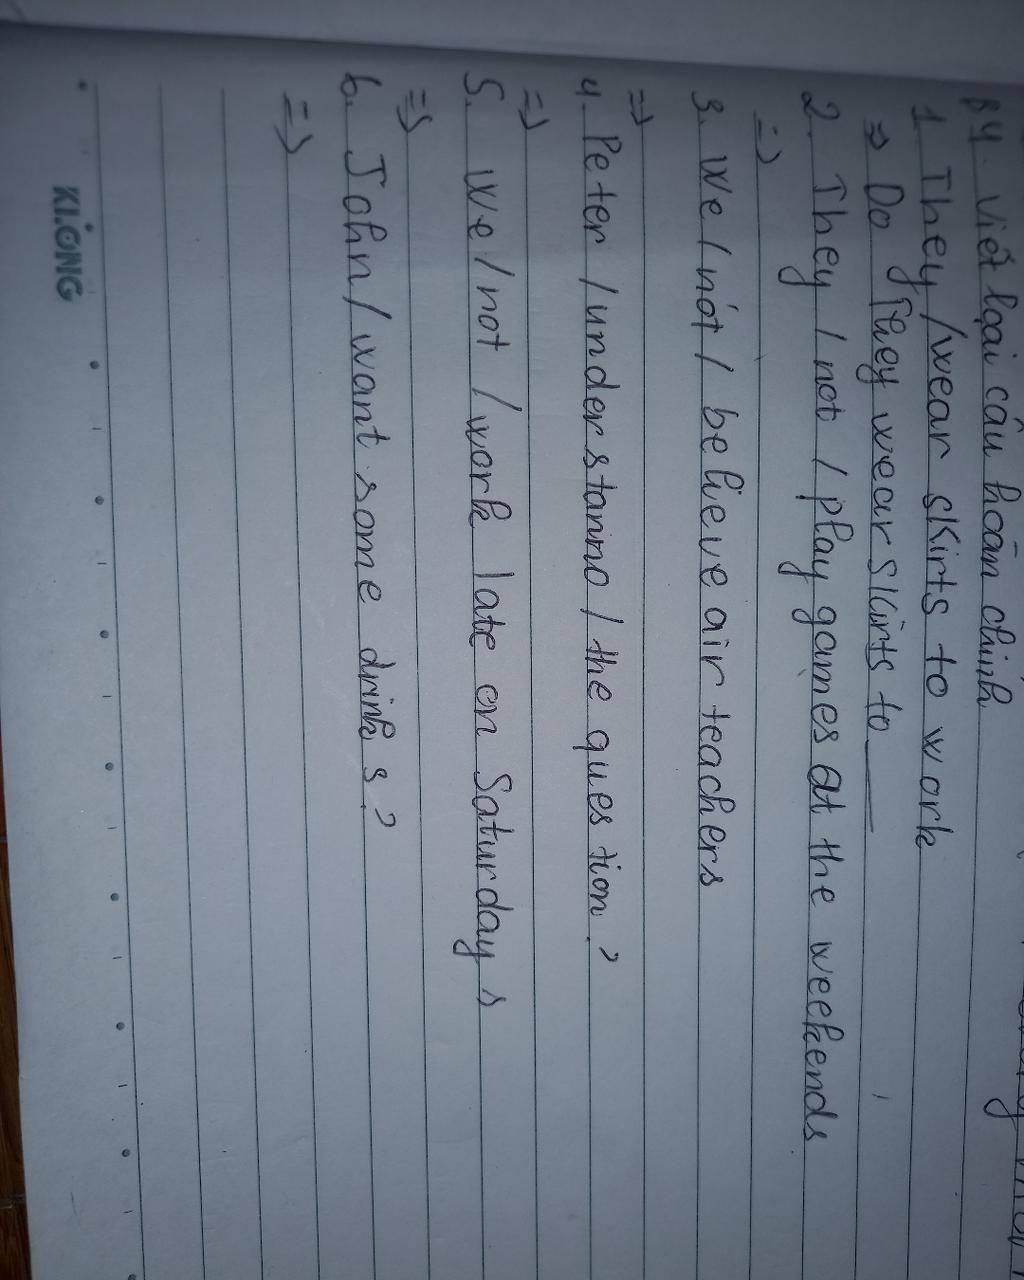 B4. Viết loại câu hoàn chỉnh
1. They / wear skirts to work
=> Do They wear skirts to ____
2. They / not / play games at the weekends
=>
3. We / not / believe air teachers
=>
4. Peter / understanno / the question?
=>
5. We / not / work late on Saturdays
=>
6. John / want some drinks?
=>
KLONG